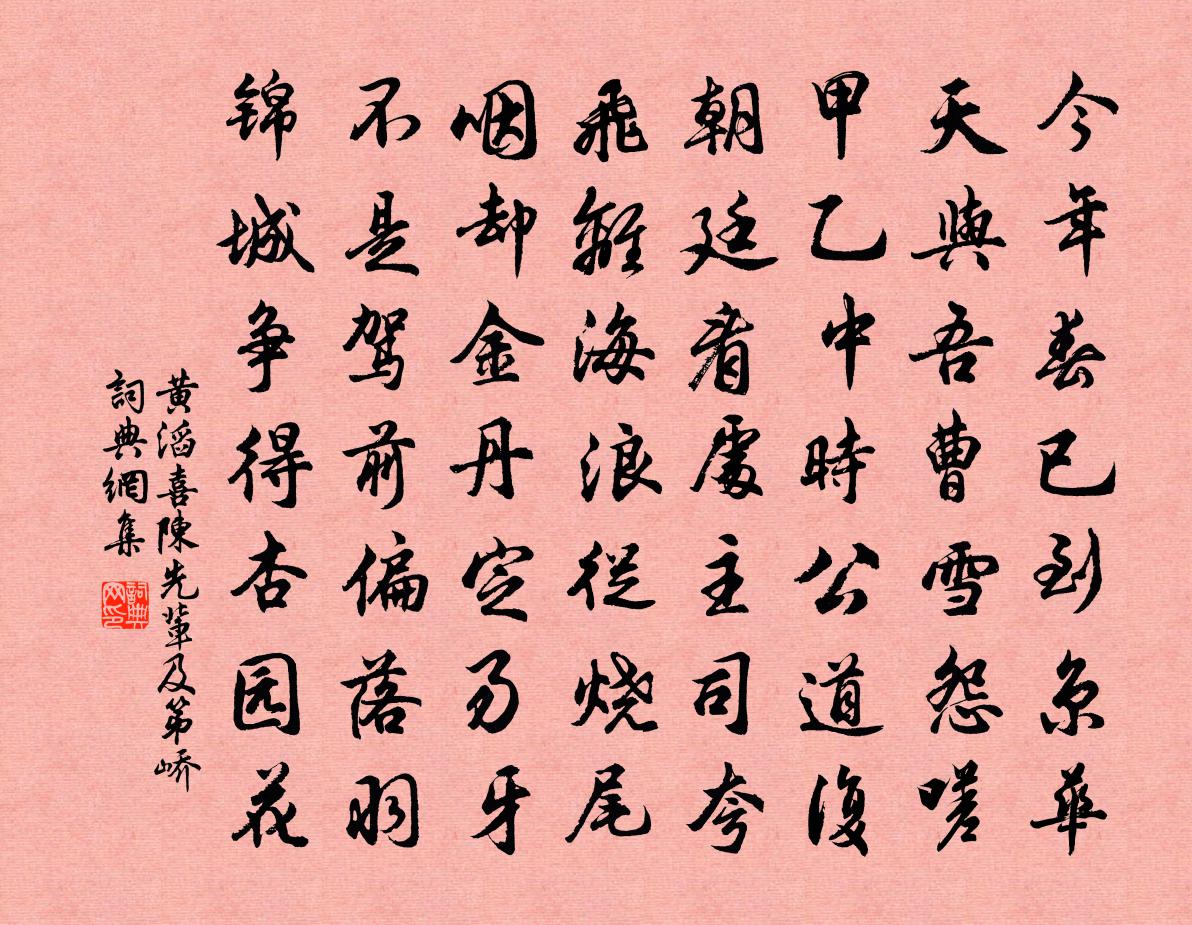 今年春已到京華
天與吾曹雪怨嗟
甲乙中時公道復
朝廷看處主司夸
飛離海浪從烧尾
咽却金丹定易牙
不是驾前偏落羽
锦城争得杏园花
黄滔喜陳先輩及第嶠
詞典網集
詞典网印